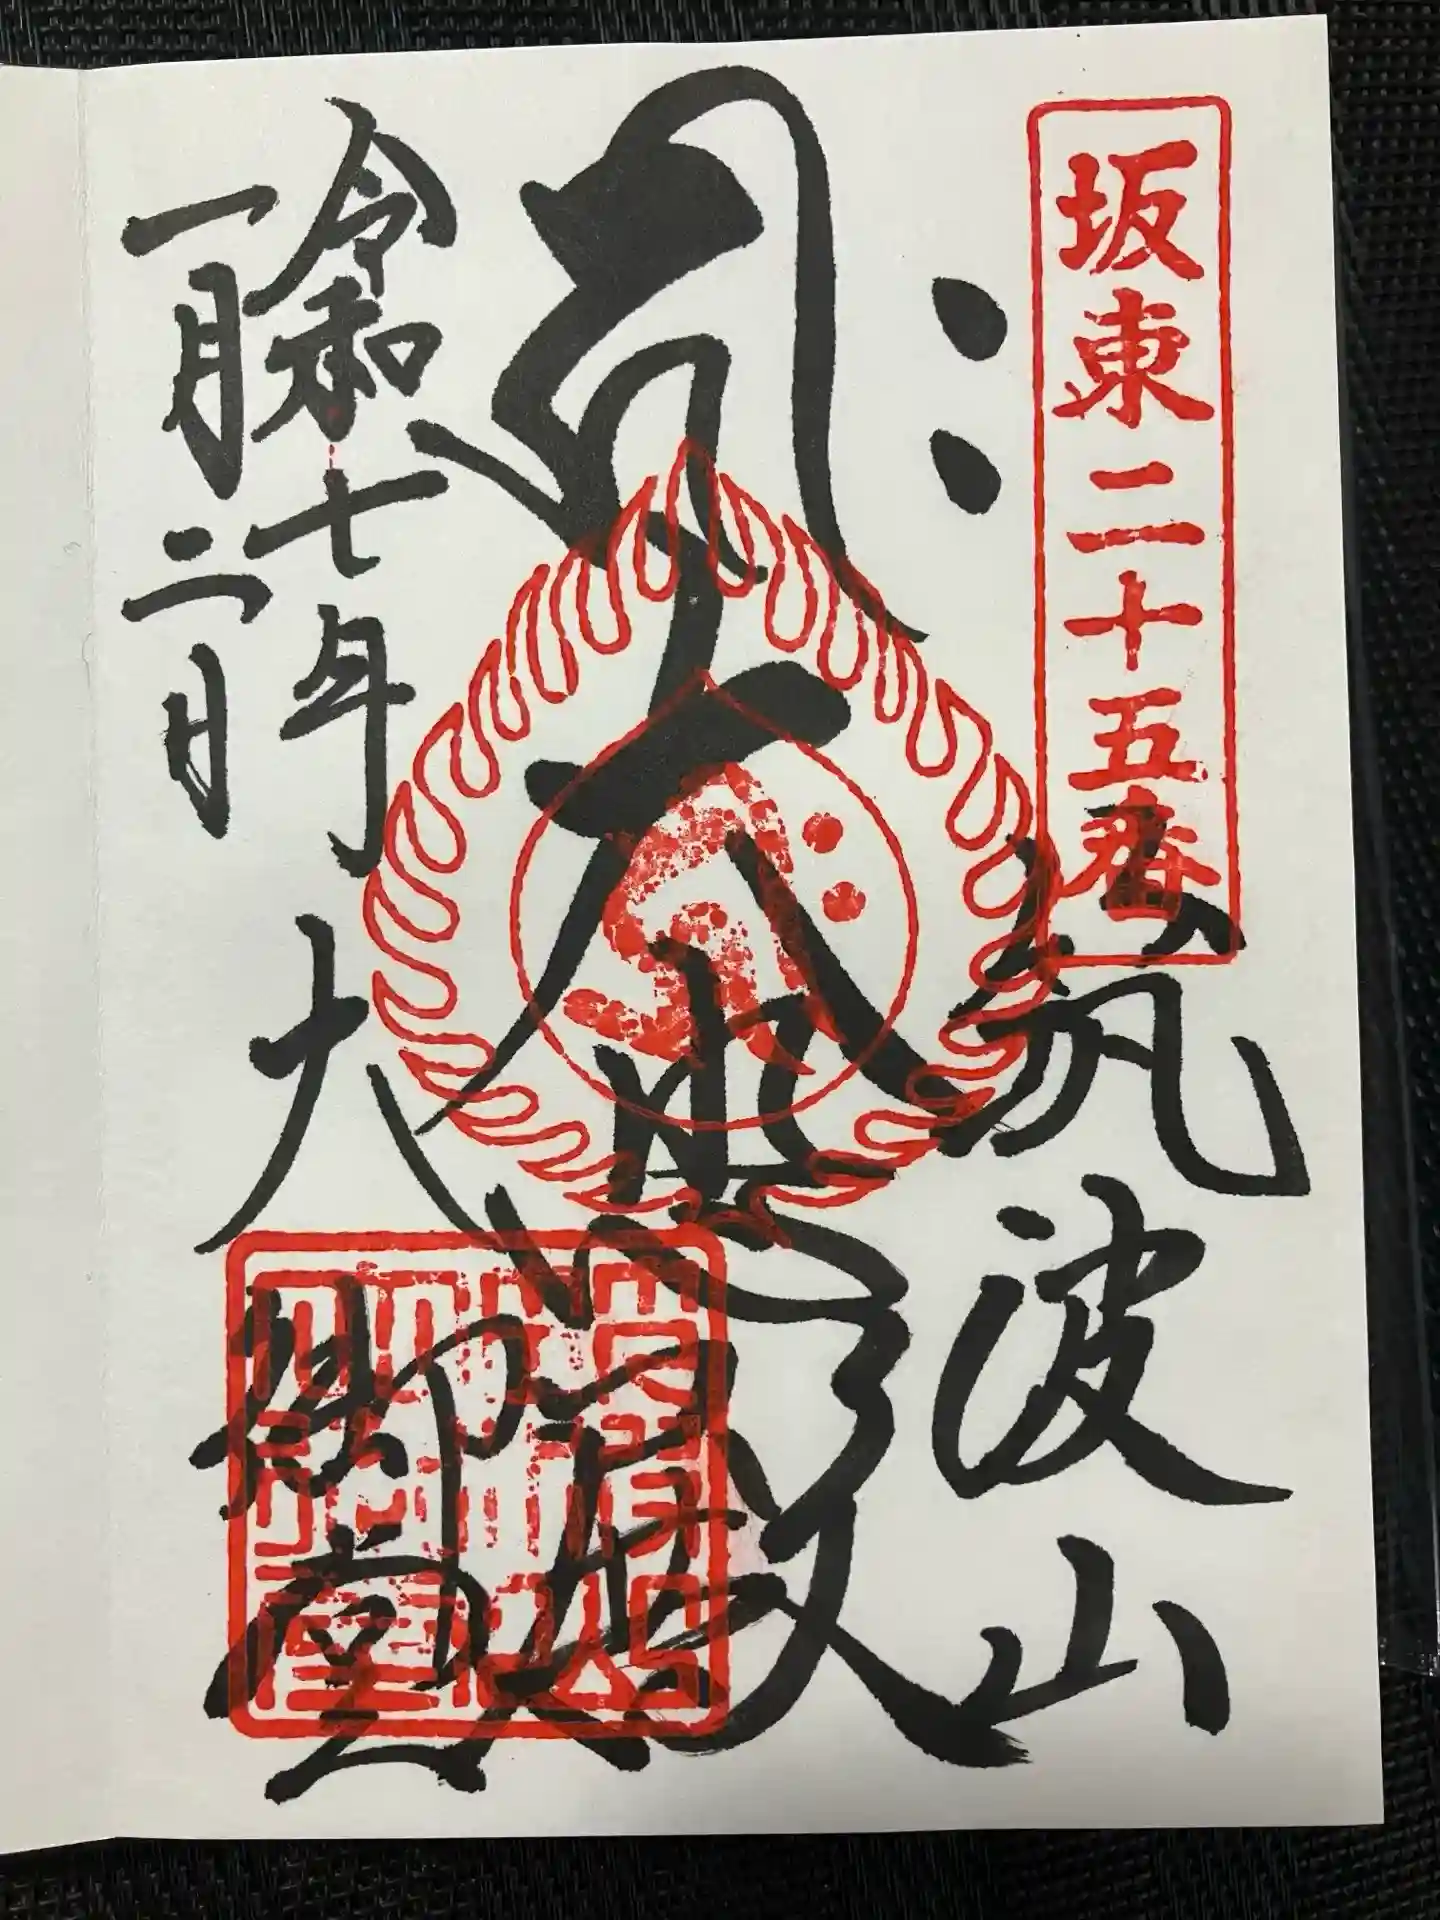 坂東二十五番
筑波山
大悲殿
令和七年
一月二日
大御堂